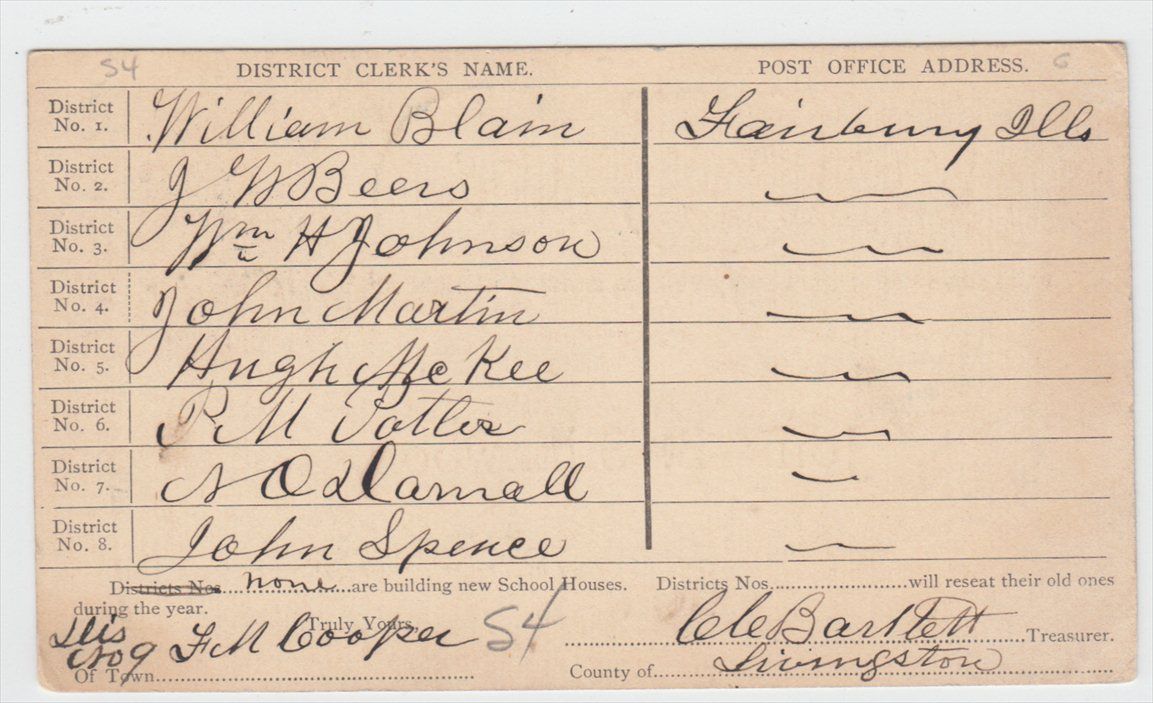 54 DISTRICT CLERK'S NAME. POST OFFICE ADDRESS. 6
District No. 1. William Blain Fairbury Ills
District No. 2. J W Beers
District No. 3. Wm H Johnson
District No. 4. John Martin
District No. 5. Hugh McKee
District No. 6. R M Potter
District No. 7. N O Darnall
District No. 8. John Spence
Districts Nos. none are building new School Houses. Districts Nos. will reseat their old ones
during the year.
Truly Yours,
Dis No 9 F M Cooper 54 Bartlett Treasurer.
Of Town County of Livingston